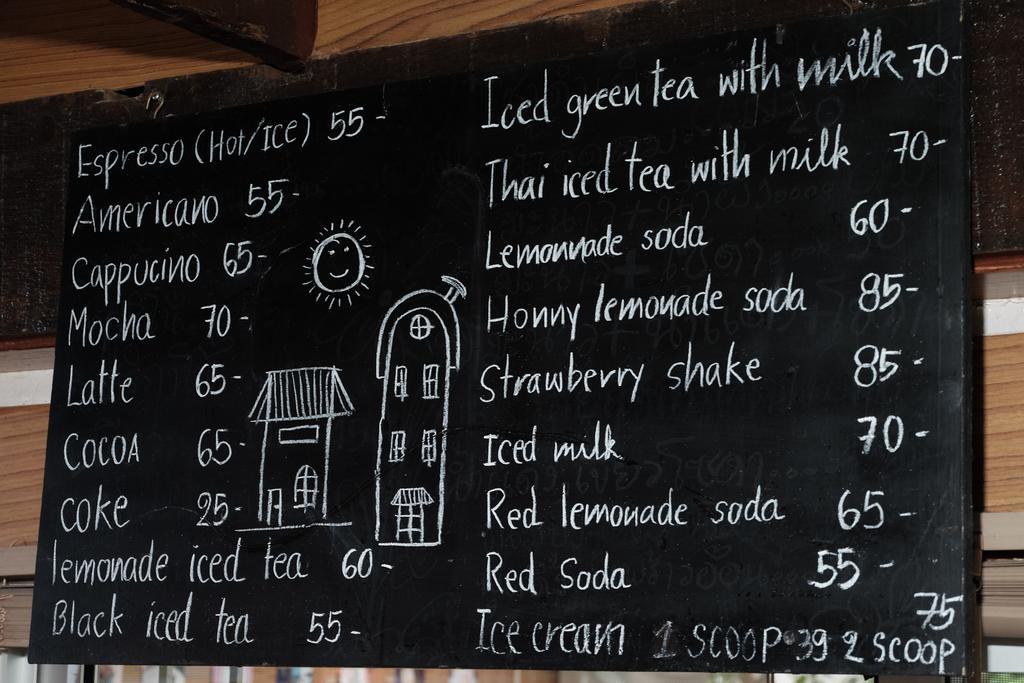 Espresso (Hot/Ice) 55-
Americano 55-
Cappucino 65-
Mocha 70-
Latte 65-
COCOA 65-
coke 25-
lemonade iced tea 60-
Black iced tea 55-
Iced green tea with milk 70-
Thai iced tea with milk 70-
Lemonnade soda 60-
Honny lemonade soda 85-
Strawberry shake 85-
Iced milk 70-
Red lemonade soda 65-
Red Soda 55-
75
Ice cream 1 SCOOP 39 2 SCOOP